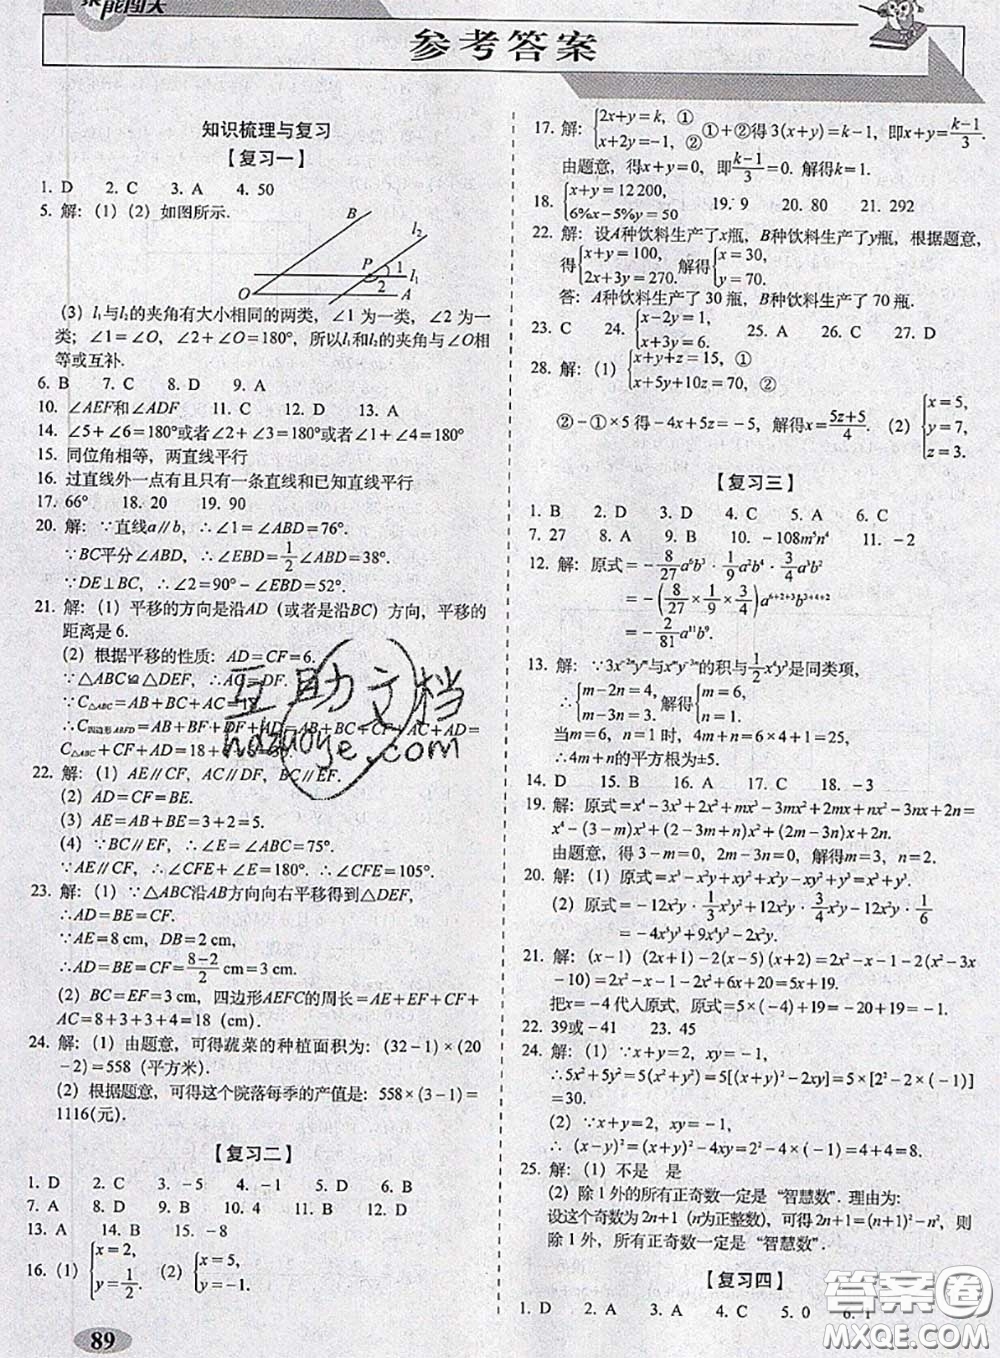 聚能闯关
参考答案
知识梳理与复习
【复习一】
1. D 2. C 3. A 4. 50
5. 解：(1) (2) 如图所示.
B
l₂
P
1
2
l₁
O
A
(3) l₁与l₂的夹角有大小相同的两类，∠1 为一类，∠2 为一
类；∠1=∠O，∠2+∠O=180°，所以l₁和l₂的夹角与∠O相
等或互补.
6. B 7. C 8. D 9. A
10. ∠AEF和∠ADF 11. C 12. D 13. A
14. ∠5+∠6=180°或者∠2+∠3=180°或者∠1+∠4=180°
15. 同位角相等，两直线平行
16. 过直线外一点有且只有一条直线和已知直线平行
17. 66° 18. 20 19. 90
20. 解：∵直线a∥b，∴∠1=∠ABD=76°.
∵BC平分∠ABD，∴∠EBD=1/2∠ABD=38°.
∵DE⊥BC，∴∠2=90°-∠EBD=52°.
21. 解：(1) 平移的方向是沿AD（或者是沿BC）方向，平移的
距离是 6.
(2) 根据平移的性质：AD=CF=6.
∵△ABC≌△DEF，∴AC=DF.
∵C△ABC=AB+BC+AC=18，
∴C四边形ABFD=AB+BF+DF+AD=AB+BC+CF+AC+AD=
C△ABC+CF+AD=18+6+6=30.
22. 解：(1) AE∥CF，AC∥DF，BC∥EF.
(2) AD=CF=BE.
(3) AE=AB+BE=3+2=5.
(4) ∵BC∥EF，∴∠E=∠ABC=75°.
∵AE∥CF，∴∠CFE+∠E=180°. ∴∠CFE=105°.
23. 解：(1) ∵△ABC沿AB方向向右平移得到△DEF，
∴AD=BE=CF.
∵AE=8 cm，DB=2 cm，
∴AD=BE=CF=(8-2)/2 cm=3 cm.
(2) BC=EF=3 cm，四边形AEFC的周长=AE+EF+CF+
AC=8+3+3+4=18（cm）.
24. 解：(1) 由题意，可得蔬菜的种植面积为：(32-1)×(20
-2)=558（平方米）.
(2) 根据题意，可得这个院落每季的产值是：558×(3-1)=
1116(元).
【复习二】
1. D 2. C 3. -5 4. -1 5. D 6. B
7. A 8. D 9. B 10. 4 11. B 12. D
13. A 14. B 15. -8
16. (1) {x=2, y=1/2. (2) {x=5, y=-1.
89
17. 解：{2x+y=k，① x+2y=-1，② ①+②得 3(x+y)=k-1，即x+y=(k-1)/3.
由题意，得x+y=0，即(k-1)/3=0. 解得k=1.
18. {x+y=12 200, 6%x-5%y=50 19. 9 20. 80 21. 292
22. 解：设A种饮料生产了x瓶，B种饮料生产了y瓶，根据题意，
得{x+y=100, 2x+3y=270. 解得{x=30, y=70.
答：A种饮料生产了 30 瓶，B种饮料生产了 70 瓶.
23. C 24. {x-2y=1, x+3y=6. 25. A 26. C 27. D
28. 解：(1) {x+y+z=15，① x+5y+10z=70，②
②-①×5 得-4x+5z=-5，解得x=(5z+5)/4. (2) {x=5, y=7, z=3.
【复习三】
1. B 2. D 3. D 4. C 5. A 6. C
7. 27 8. A 9. B 10. -108m⁵n⁴ 11. -2
12. 解：原式=-8/27a⁶b³·1/9a²b⁴·3/4a³b²
=-(8/27×1/9×3/4)a⁶⁺²⁺³b³⁺⁴⁺²
=-2/81a¹¹b⁹.
13. 解：∵3x⁻²ᵐyᵐ与xⁿy⁻³ⁿ的积与1/2x⁴y³是同类项，
∴{m-2n=4, m-3n=3. 解得{m=6, n=1.
当m=6，n=1 时，4m+n=4×6+1=25，
∴4m+n的平方根为±5.
14. D 15. B 16. A 17. C 18. -3
19. 解：原式=x⁴-3x³+2x²+mx³-3mx²+2mx+nx²-3nx+2n=
x⁴-(3-m)x³+(2-3m+n)x²+(2m-3n)x+2n.
由题意，得 3-m=0，2-3m+n=0，解得m=3，n=2.
20. 解：(1) 原式=x³-x²y+xy²+x²y-xy²+y³=x³+y³.
(2) 原式=-12x²y·1/3x²y²+12x²y·3/4x²y+12x²y·1/6
=-4x⁴y³+9x⁴y²-2x²y.
21. 解：(x-1)(2x+1)-2(x-5)(x+2)=2x²-x-1-2(x²-3x
-10)=2x²-x-1-2x²+6x+20=5x+19.
把x=-4代入原式，原式=5×(-4)+19=-20+19=-1.
22. 39或-41 23. 45
24. 解：(1) ∵x+y=2，xy=-1，
∴5x²+5y²=5(x²+y²)=5[(x+y)²-2xy]=5×[2²-2×(-1)]
=30.
(2) ∵x+y=2，xy=-1，
∴(x-y)²=(x+y)²-4xy=2²-4×(-1)=4+4=8.
25. 解：(1) 不是 是
(2) 除 1 外的所有正奇数一定是“智慧数”. 理由为：
设这个奇数为 2n+1（n为正整数），可得2n+1=(n+1)²-n²，则
除 1 外，所有正奇数一定是“智慧数”.
【复习四】
1. D 2. A 3. A 4. C 5. 0 6. 1
互助文档
hdzuoye.com
答案圈
MXQE.COM